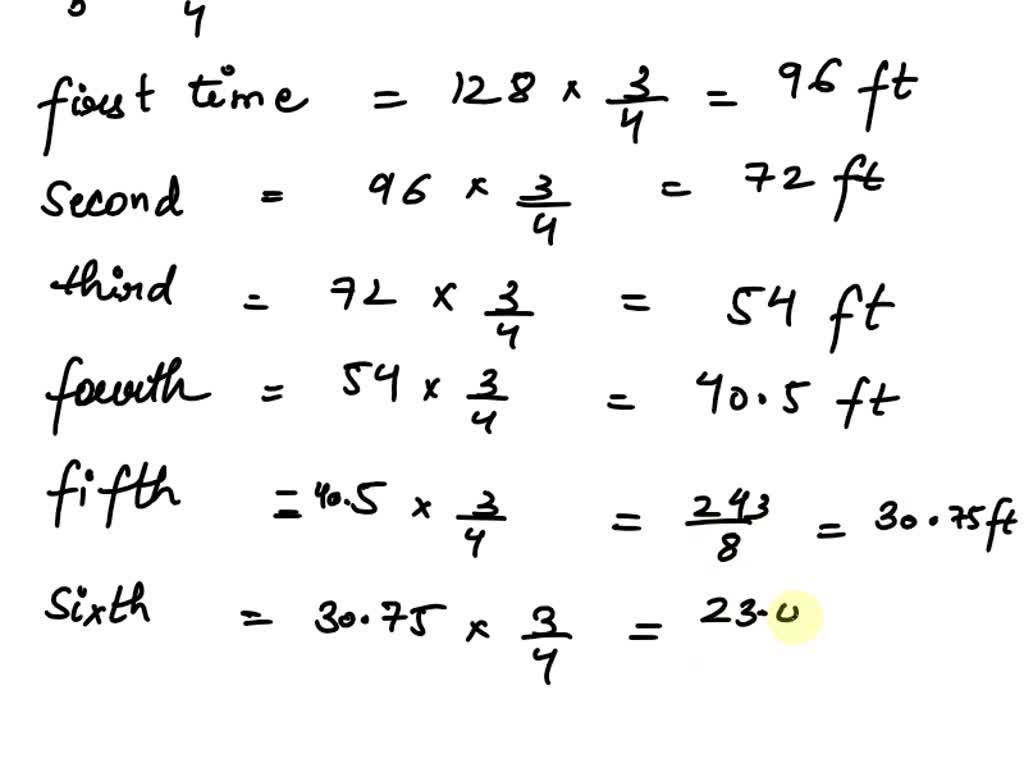 4
first time = 128 × 3/4 = 96 ft
Second = 96 × 3/4 = 72 ft
third = 72 × 3/4 = 54 ft
fourth = 54 × 3/4 = 40.5 ft
fifth = 40.5 × 3/4 = 243/8 = 30.75 ft
Sixth = 30.75 × 3/4 = 23.0